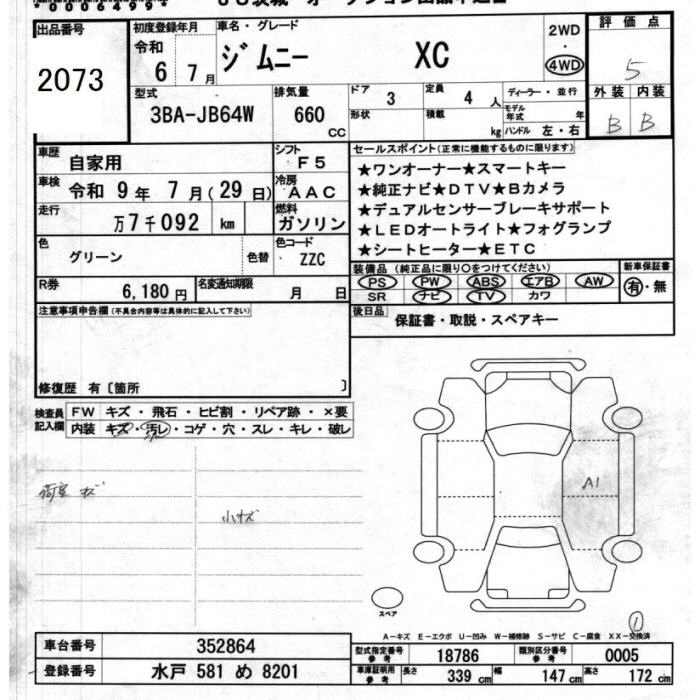 出品番号
2073
初度登録年月
令和
6 7月
車名・グレード
ジムニー XC
2WD
・
4WD
評価点
5
外装 内装
B B
型式
3BA-JB64W
排気量
660
CC
ドア 3
定員 4 人
形状
積載 kg
ディーラー・並行
モデル年式 年
ハンドル 左・右
車歴 自家用
シフト F5
車検 令和 9年 7月(29日)
冷房 AAC
走行 万7千092 km
燃料 ガソリン
色 グリーン 色替
色コード ZZC
R券 6,180円
名変通知期限 月 日
セールスポイント(正常に機能するものに限ります)
★ワンオーナー★スマートキー
★純正ナビ★DTV★Bカメラ
★デュアルセンサーブレーキサポート
★LEDオートライト★フォグランプ
★シートヒーター★ETC
装備品 (純正品に限り○をつけてください)
PS PW ABS エアB AW
SR ナビ TV カワ
新車保証書
有・無
後日品
保証書・取説・スペアキー
注意事項申告欄(不具合内容等は具体的に記入して下さい)
修復歴 有〔箇所 〕
検査員記入欄
FW キズ・飛石・ヒビ割・リペア跡・×要
内装 キズ・汚レ・コゲ・穴・スレ・キレ・破レ
荷室 キズ
小キズ
A1
スペア
1
A-キズ E-エクボ U-凹み W-補修跡 S-サビ C-腐食 XX-交換済
車台番号 352864
登録番号 水戸 581 め 8201
型式指定番号 参考 18786
類別区分番号 参考 0005
車庫証明用 参考 長さ 339 cm 幅 147 cm 高さ 172 cm